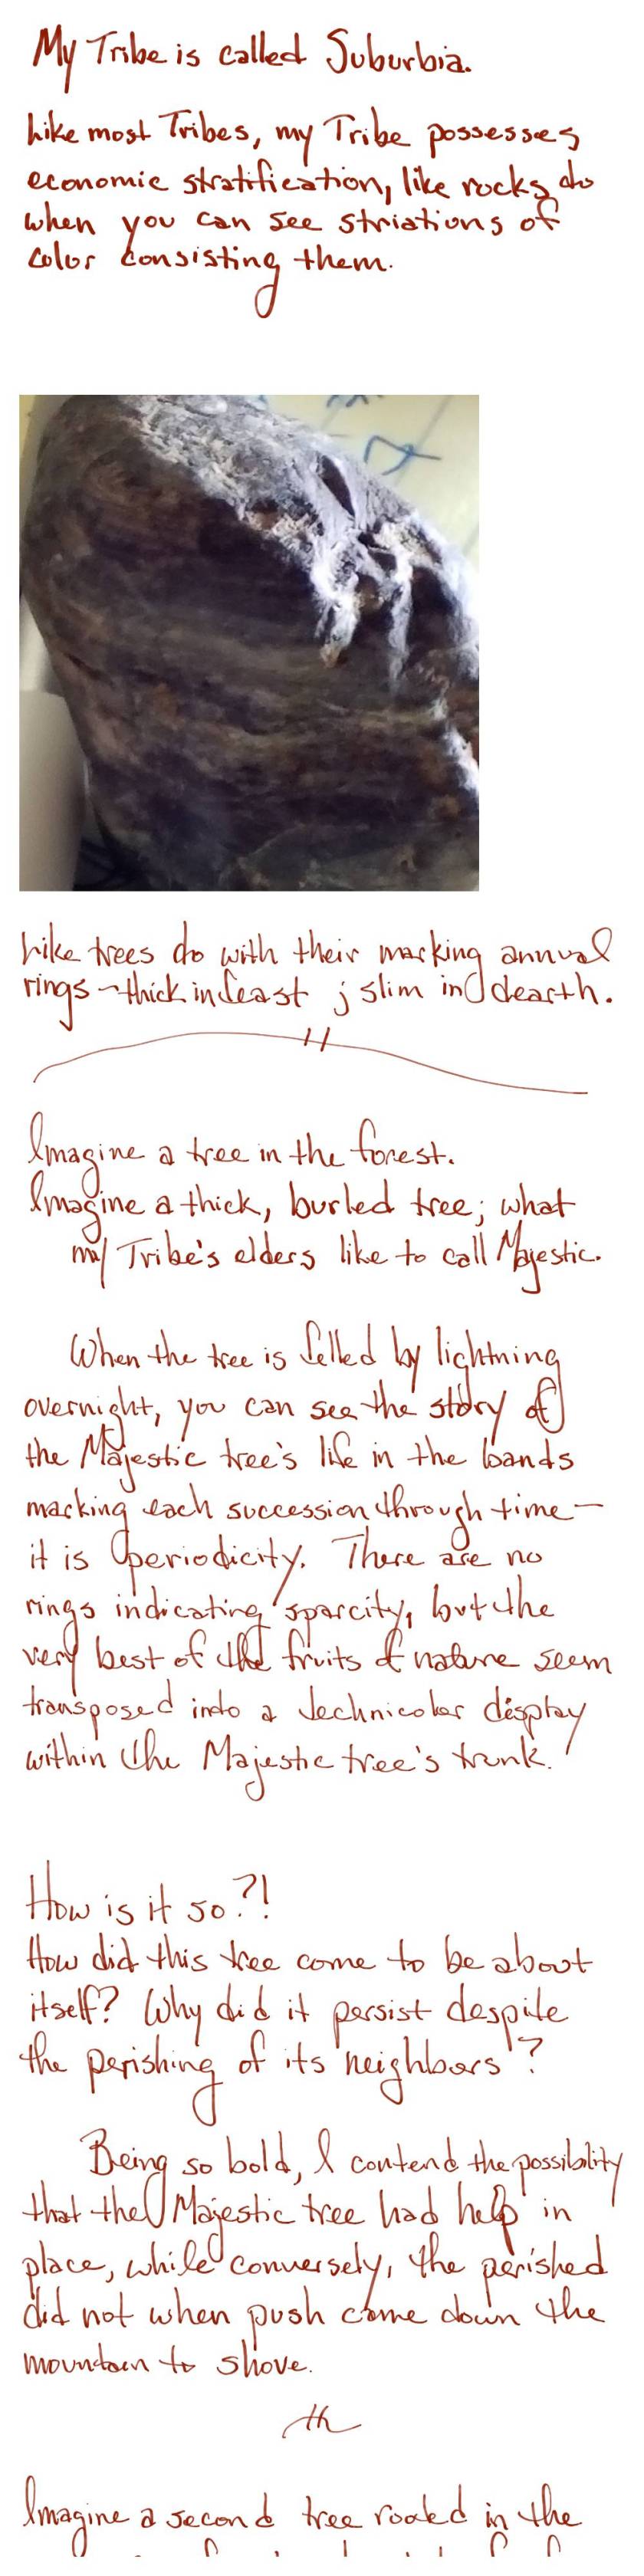 My Tribe is called Suburbia.
Like most Tribes, my Tribe possesses
economic stratification, like rocks do
when you can see striations of
color consisting them.
Like trees do with their marking annual
rings - thick in feast ; slim in dearth.
Imagine a tree in the forest.
Imagine a thick, burled tree; what
my Tribe's elders like to call Majestic.
When the tree is felled by lightning
overnight, you can see the story of
the Majestic tree's life in the bands
marking each succession through time—
it is periodicity. There are no
rings indicating sparcity, but the
very best of the fruits of nature seem
transposed into a technicolor display
within the Majestic tree's trunk.
How is it so?!
How did this tree come to be about
itself? Why did it persist despite
the perishing of its neighbors?
Being so bold, I contend the possibility
that the Majestic tree had help in
place, while conversely, the perished
did not when push came down the
mountain to shove.
Imagine a second tree rooted in the